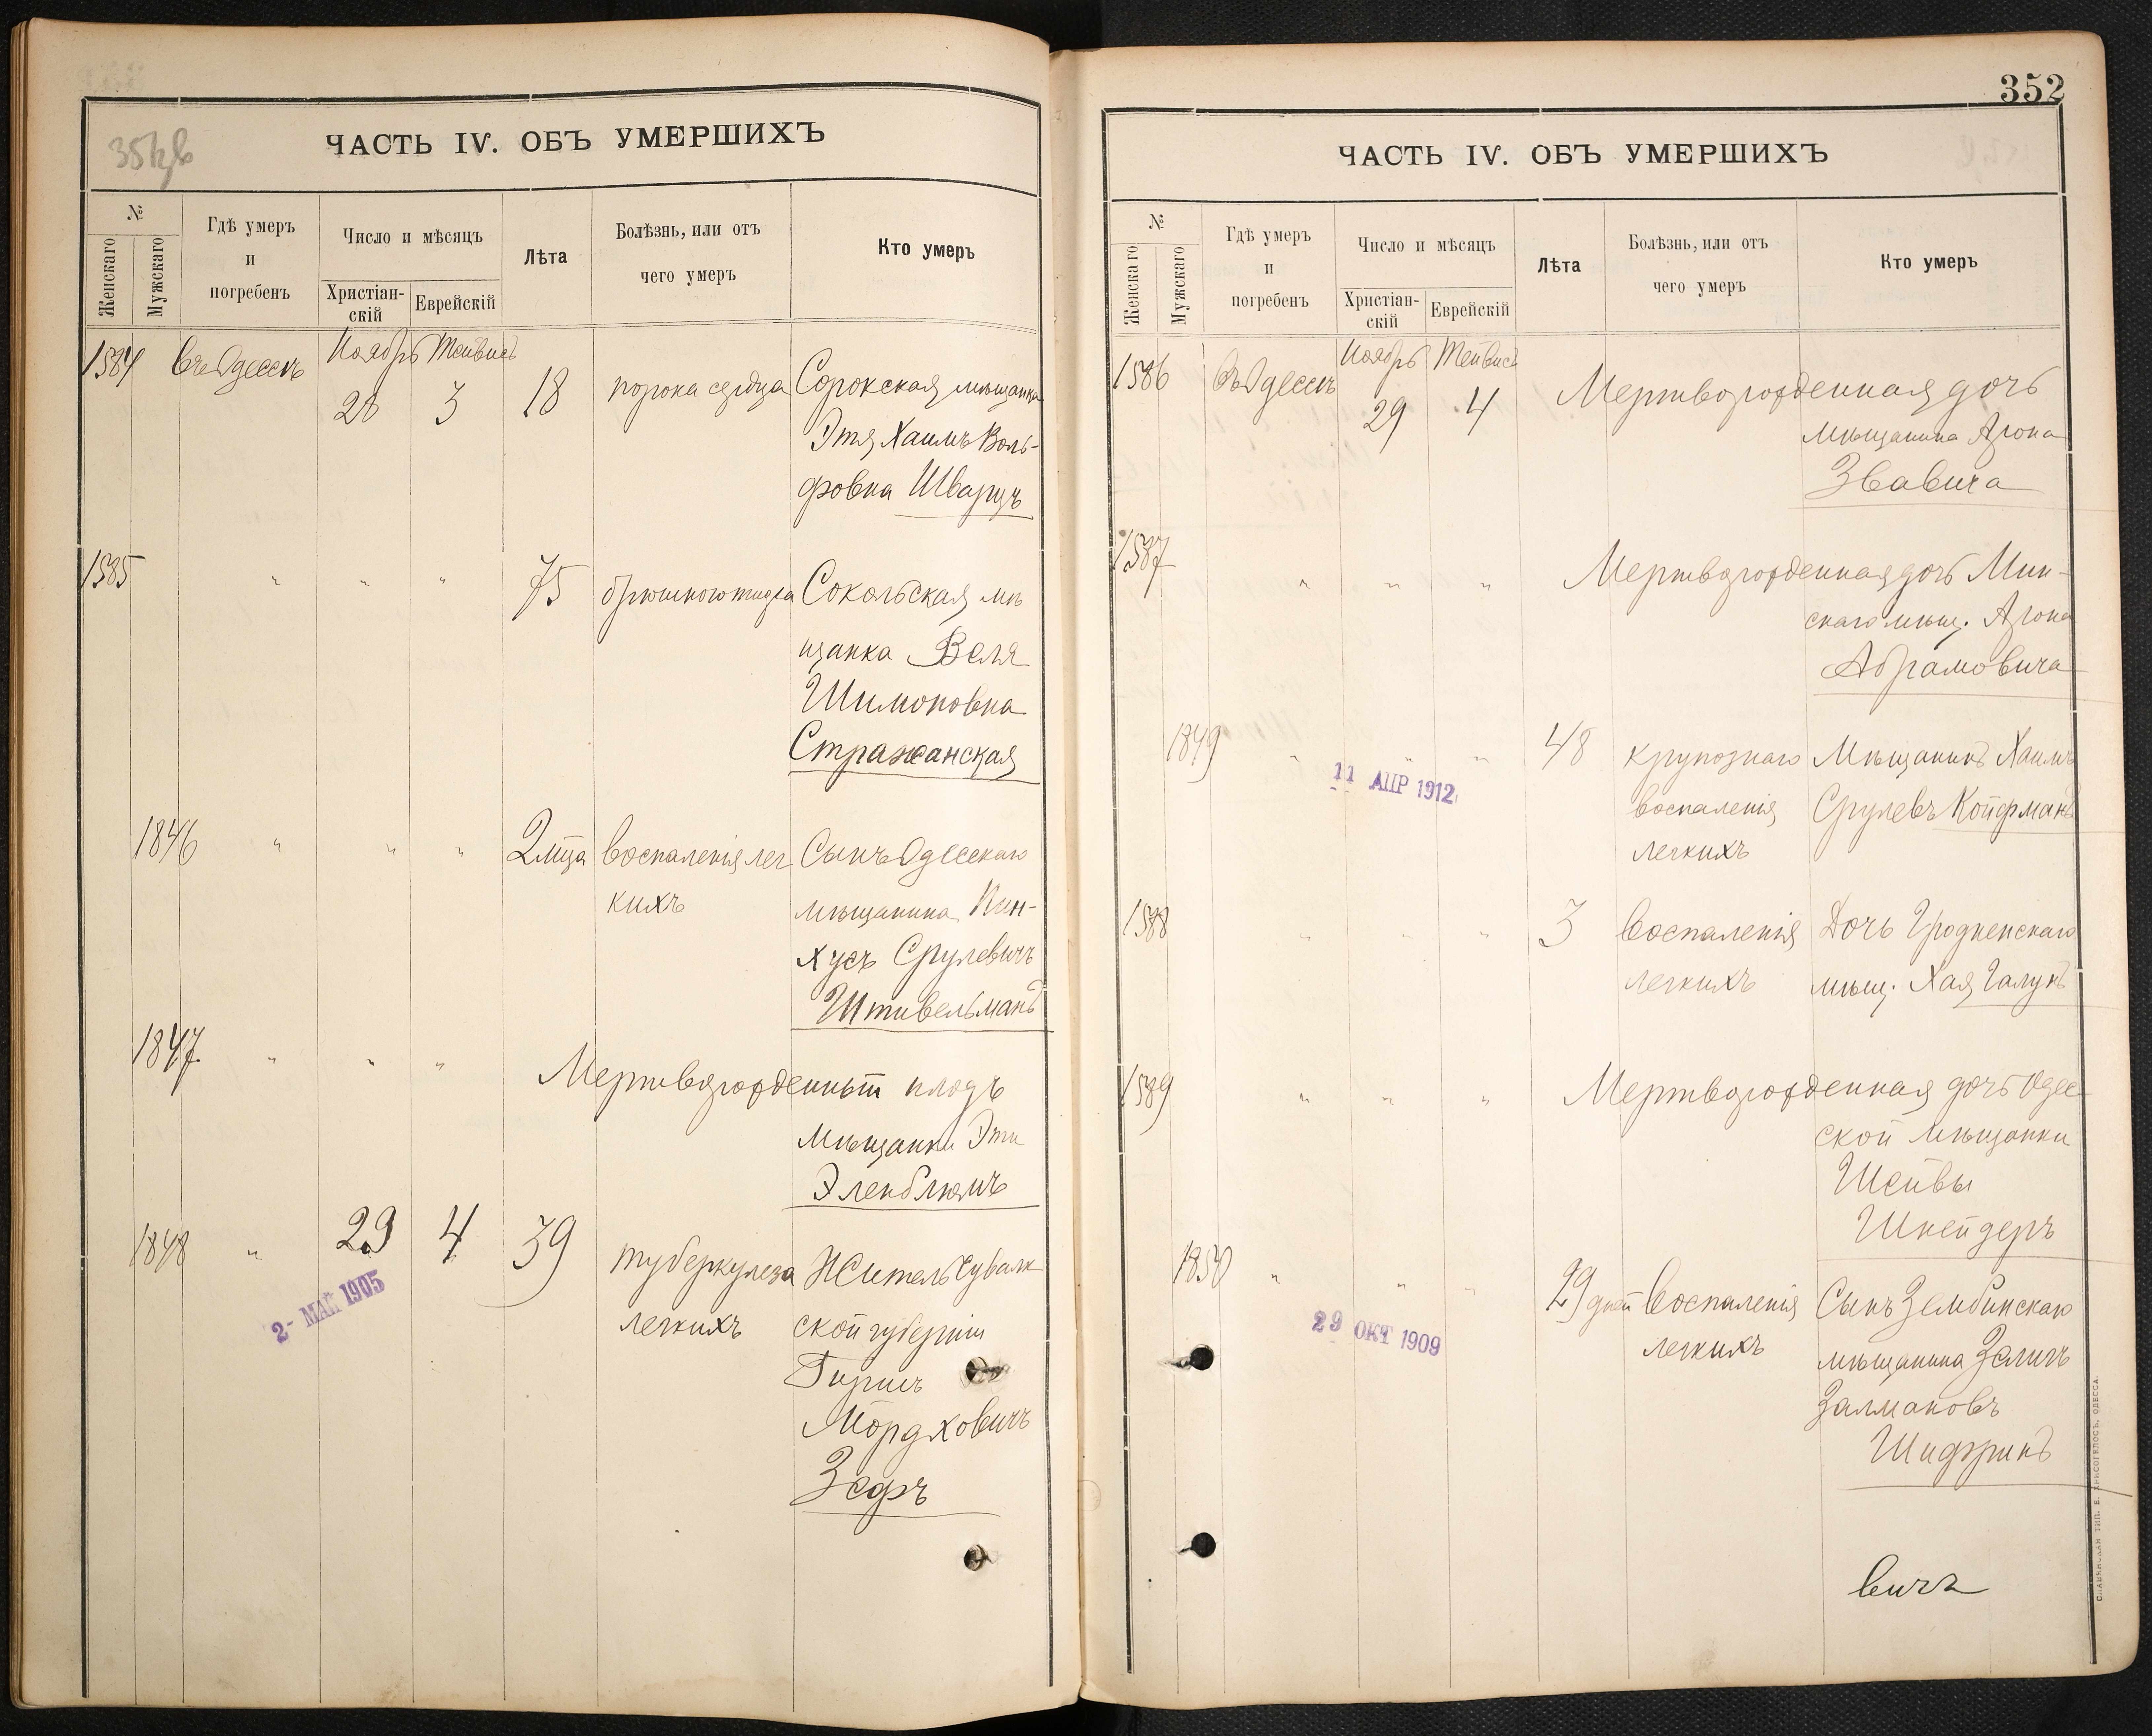 351об
ЧАСТЬ IV. ОБЪ УМЕРШИХЪ
№
Женскаго
Мужскаго
Гдѣ умеръ
и
погребенъ
Число и мѣсяцъ
Христіан-
скій
Еврейскій
Лѣта
Болѣзнь, или отъ
чего умеръ
Кто умеръ
Ноябрь Тейвисъ
1584 въ Одессѣ 28 3 18 порока сердца Сорокская мѣщанка
Этя Хаимъ Воль-
фовна Шварцъ
1585 " " " 75 брюшного тифа Сокольская мѣ
щанка Веля
Шимоновна
Стражанская
1846 " " " 2 мца воспаленія лег Сынъ Одесскаго
кихъ мѣщанина Пин-
хусъ Срулевичъ
Штивельманъ
1847 " " " Мертворожденный плодъ
мѣщанки Эти
Эленблюмъ
1848 " 29 4 39 туберкулеза Житель Сувалк
легкихъ ской губерніи
Гиршъ
Мордховичъ
Зефъ
2- МАЙ 1905
352
ЧАСТЬ IV. ОБЪ УМЕРШИХЪ
№
Женскаго
Мужскаго
Гдѣ умеръ
и
погребенъ
Число и мѣсяцъ
Христіан-
скій
Еврейскій
Лѣта
Болѣзнь, или отъ
чего умеръ
Кто умеръ
Ноябрь Тейвисъ
1586 въ Одессѣ 29 4 Мертворожденная дочь
мѣщанина Арона
Звавича
1587 " " " Мертворожденная дочь Мин-
скаго мѣщ. Арона
Абрамовича
1849 " " " 48 крупознаго Мѣщанинъ Хаимъ
воспаленія Срулевъ Койфманъ
легкихъ
11 АПР 1912
1588 " " " 3 воспаленія Дочь Гродненскаго
легкихъ мѣщ. Хая Галунъ
1589 " " " Мертворожденная дочь Одес
ской мѣщанки
Шейвы
Шнейдеръ
1850 " " " 29 дней воспаленія Сынъ Зембинскаго
легкихъ мѣщанина Зеликъ
Залмановъ
Шифринъ
29 ОКТ 1909
вичъ
СЛАВЯНСКАЯ ТИП. Е. ХРИСОГЕЛОСЪ, ОДЕССА.